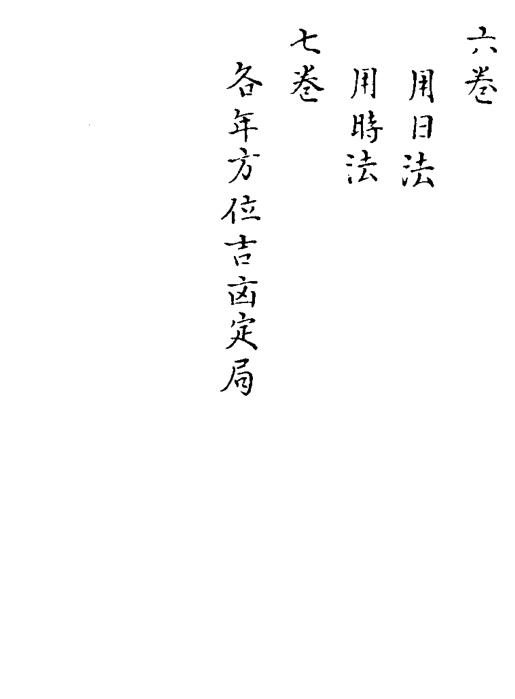 六巻
用日法
用時法
七巻
各年方位吉凶定局